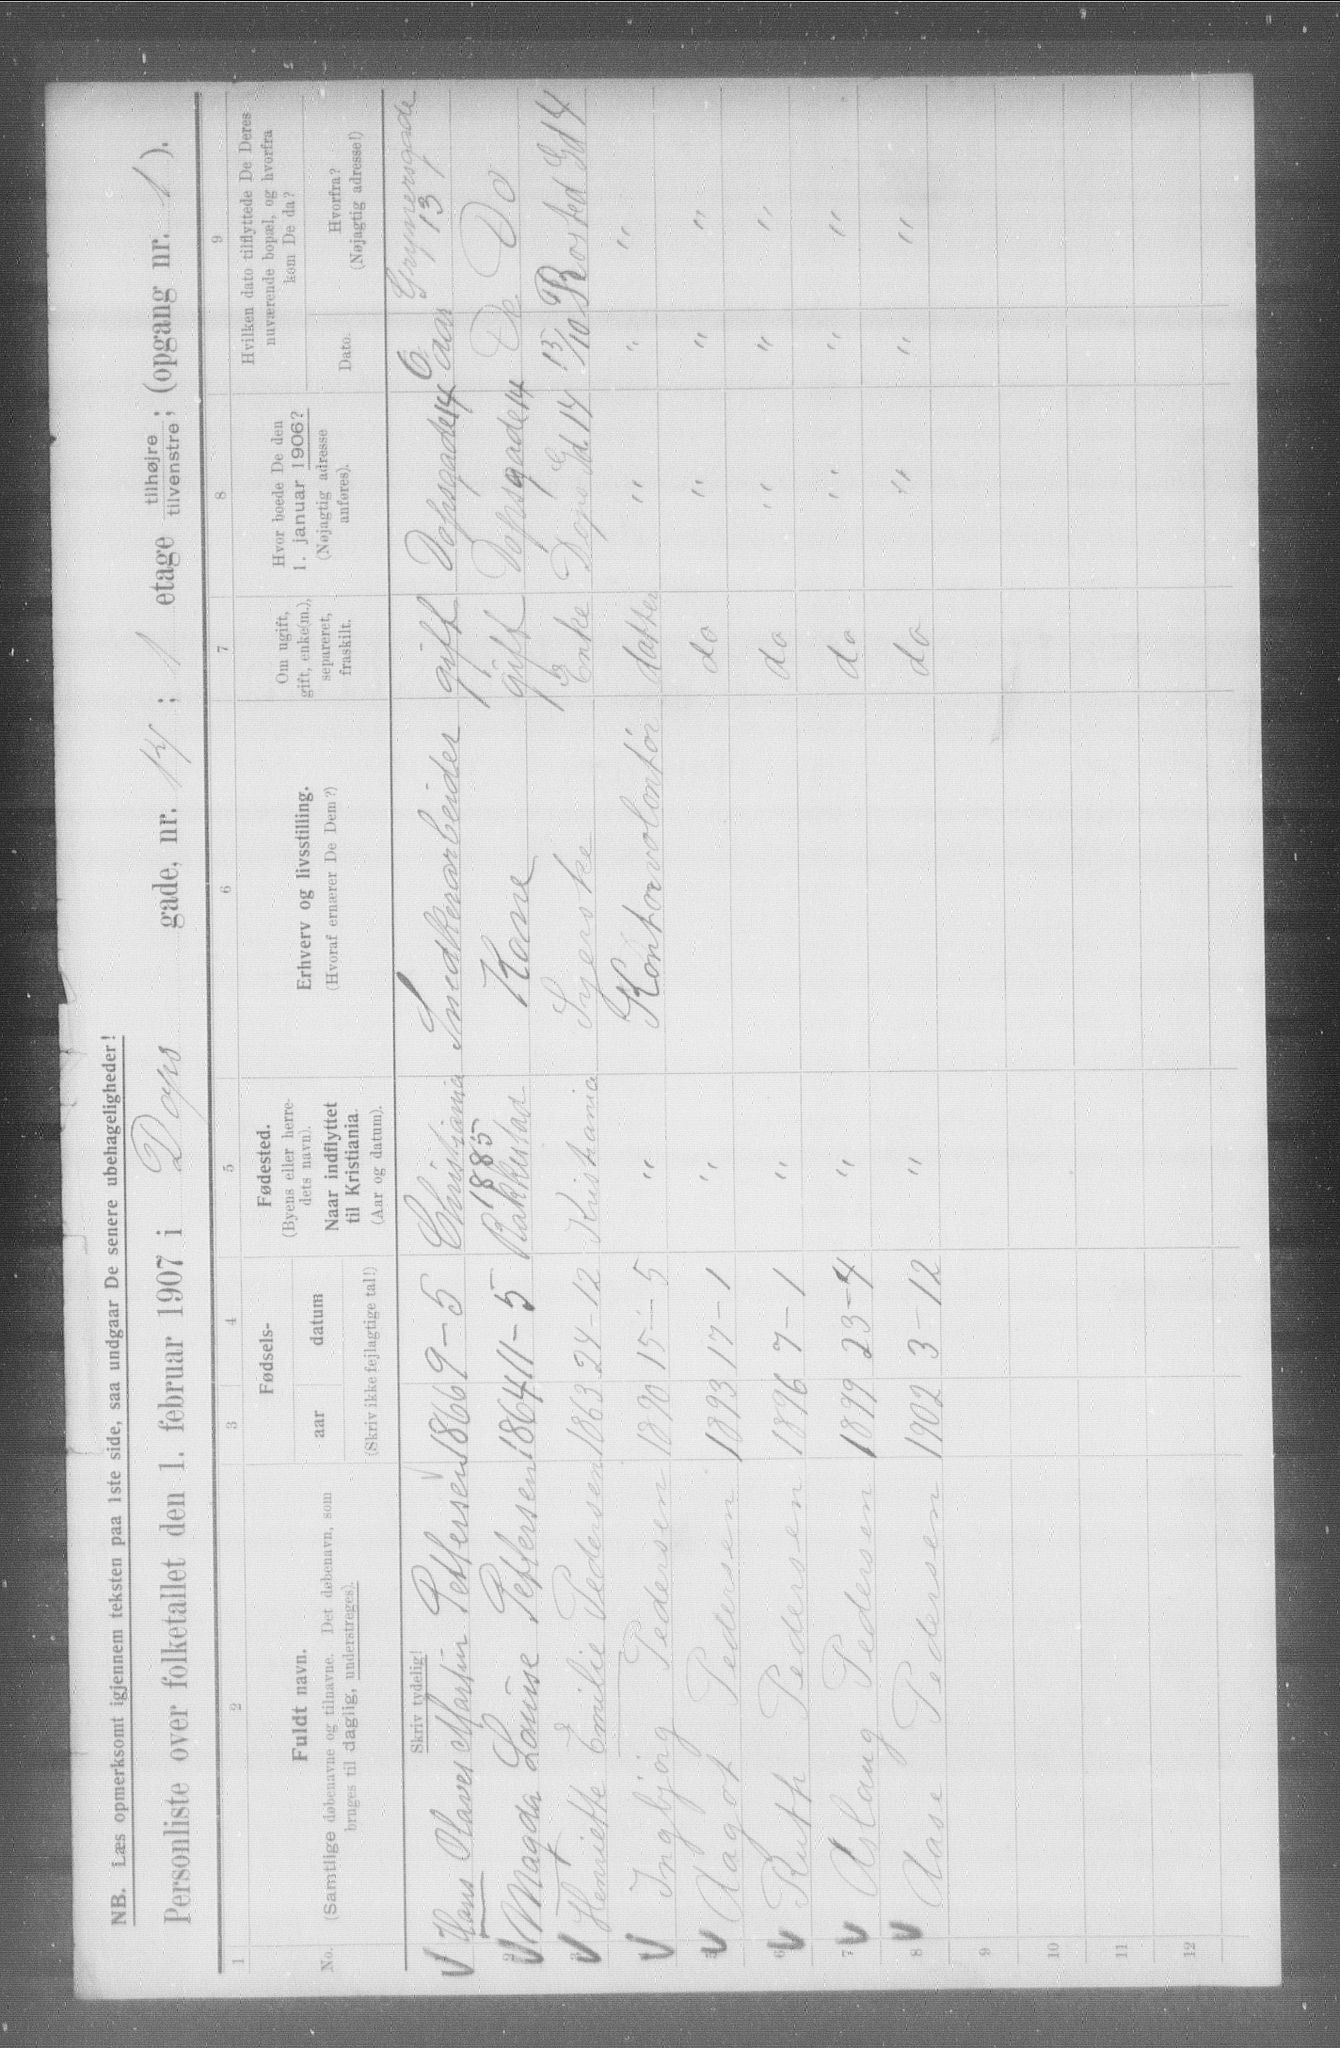 NB. Læs opmerksomt igjennem teksten paa 1ste side, saa undgaar De senere ubehageligheder!
Personliste over folketallet den 1. februar 1907 i Dops gade, nr. 14; 1 etage tilhøjre/tilvenstre; (opgang nr. 1).
1 2 3 4 5 6 7 8 9
No.
Fuldt navn.
(Samtlige døbenavne og tilnavne. Det døbenavn, som
bruges til daglig, understreges).
Skriv tydelig!
Fødsels-
aar datum
(Skriv ikke fejlagtige tal!)
Fødested.
(Byens eller herre-
dets navn).
Naar indflyttet
til Kristiania.
(Aar og datum).
Erhverv og livsstilling.
(Hvoraf ernærer De Dem?)
Om ugift,
gift, enke(m.),
separeret,
fraskilt.
Hvor boede De den
1. januar 1906?
(Nøjagtig adresse
anføres).
Hvilken dato tilflyttede De Deres
nuværende bopæl, og hvorfra
kom De da?
Dato.
Hvorfra?
(Nøjagtig adresse!)
Hans Olaves Martin Pettersen 1866 9-5 Christiania Smedkerarbeider gift Dopsgade 14 6 aar Grynersgade 13
2 Magda Louise Pettersen 1864 11-5 1885 Rakkestad Kone gift Dopsgade 14 Do Do
3 Henriette Emilie Pedersen 1863 24-12 Kristiania Syerske Enke Dops Gd. 14 13/10 Rosted Gd 4
Ingbjørg Pedersen 1890 15-5 " Kontorvolontør datter " " "
5 Aagot Pedersen 1893 17-1 " do " " "
6 Ruth Pedersen 1896 7-1 " do " " "
7 Aslaug Pedersen 1899 23-4 " do " " "
8 Aase Pedersen 1902 3-12 " do " " "
9
10
11
12